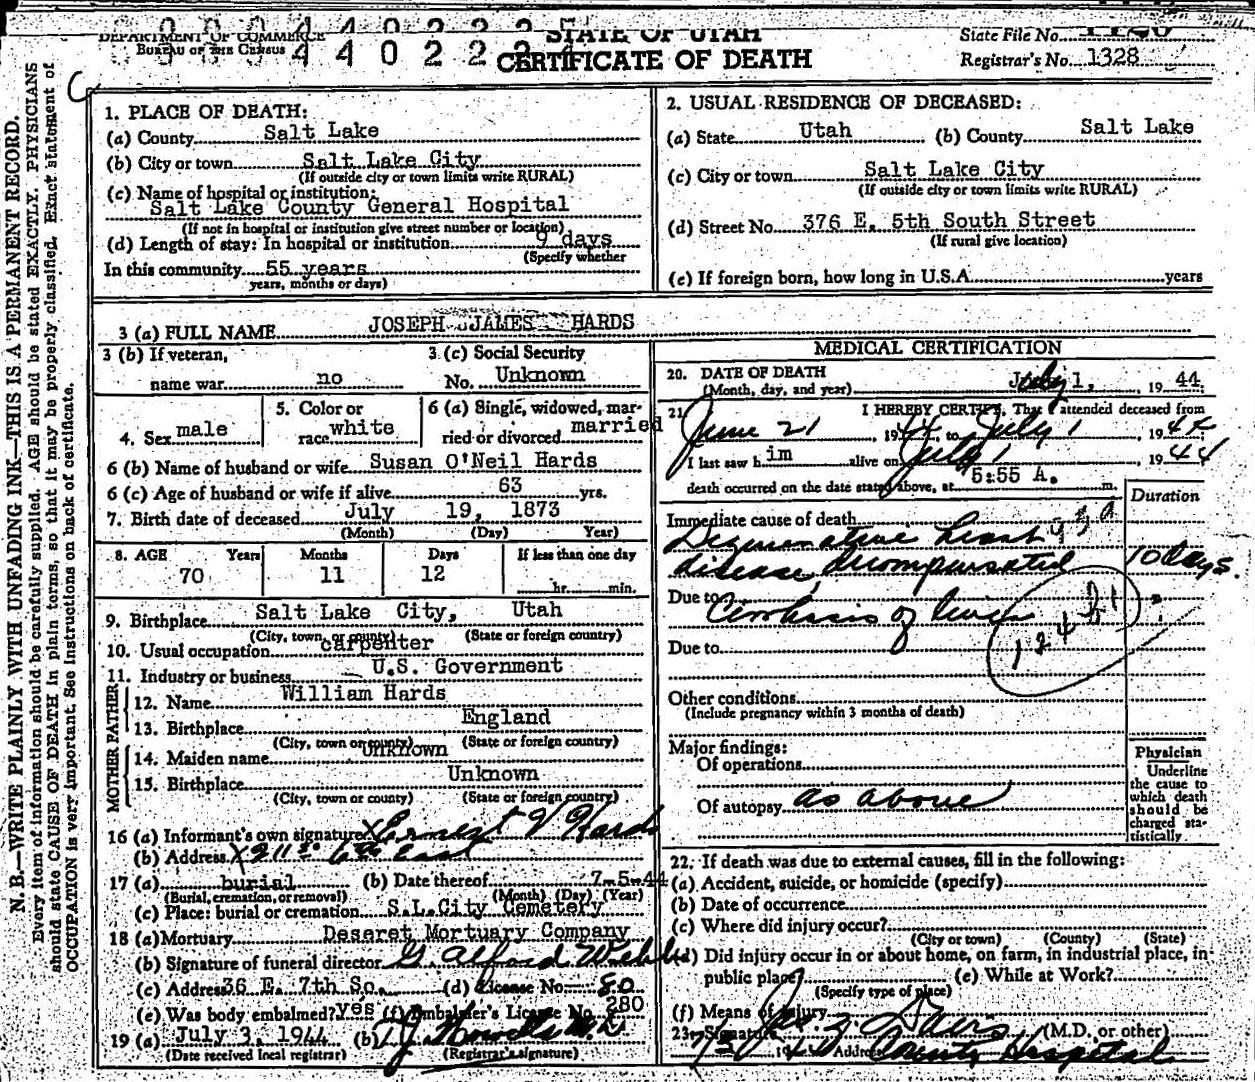 DEPARTMENT OF COMMERCE
BUREAU OF THE CENSUS
4 4 0 2 2 2
STATE OF UTAH
CERTIFICATE OF DEATH
State File No.
Registrar's No. 1328
N. B.—WRITE PLAINLY WITH UNFADING INK—THIS IS A PERMANENT RECORD.
Every item of information should be carefully supplied. AGE should be stated EXACTLY. PHYSICIANS
should state CAUSE OF DEATH in plain terms, so that it may be properly classified. Exact statement of
OCCUPATION is very important. See instructions on back of certificate.
1. PLACE OF DEATH:
(a) County Salt Lake
(b) City or town Salt Lake City
(If outside city or town limits write RURAL)
(c) Name of hospital or institution:
Salt Lake County General Hospital
(If not in hospital or institution give street number or location)
(d) Length of stay: In hospital or institution 9 days
(Specify whether
In this community 55 years
years, months or days)
2. USUAL RESIDENCE OF DECEASED:
(a) State Utah (b) County Salt Lake
(c) City or town Salt Lake City
(If outside city or town limits write RURAL)
(d) Street No. 376 E. 5th South Street
(If rural give location)
(e) If foreign born, how long in U.S.A. years
3 (a) FULL NAME JOSEPH JAMES HARDS
3 (b) If veteran,
name war no
3 (c) Social Security
No. Unknown
4. Sex male
5. Color or
race white
6 (a) Single, widowed, mar-
ried or divorced married
6 (b) Name of husband or wife Susan O'Neil Hards
6 (c) Age of husband or wife if alive 63 yrs.
7. Birth date of deceased July 19, 1873
(Month) (Day) Year)
8. AGE Years Months Days If less than one day
70 11 12 hr. min.
9. Birthplace Salt Lake City, Utah
(City, town or county) (State or foreign country)
10. Usual occupation carpenter
11. Industry or business U.S. Government
FATHER
12. Name William Hards
13. Birthplace England
(City, town or county) (State or foreign country)
MOTHER
14. Maiden name unknown
15. Birthplace Unknown
(City, town or county) (State or foreign country)
16 (a) Informant's own signature X Ernest V Hards
(b) Address X 211 So 6th East
17 (a) burial (b) Date thereof 7-5-44
(Burial, cremation, or removal) (Month) (Day) (Year)
(c) Place: burial or cremation S.L.City Cemetery
18 (a) Mortuary Deseret Mortuary Company
(b) Signature of funeral director G. Alford Webb
(c) Address 36 E. 7th So. (d) License No. 80
(e) Was body embalmed? yes (f) Embalmer's License No. 280
19 (a) July 3, 1944 (b)
(Date received local registrar) (Registrar's signature)
MEDICAL CERTIFICATION
20. DATE OF DEATH
(Month, day, and year) July 1, 19 44
21. I HEREBY CERTIFY, That I attended deceased from
June 21 1944 to July 1, 1944
I last saw him alive on July 1 1944
death occurred on the date stated above, at 5:55 A. m.
Duration
Immediate cause of death
Degenerative heart
disease, decompensated 10 days.
Due to Cirrhosis of liver ?
Due to
Other conditions
(Include pregnancy within 3 months of death)
Major findings:
Of operations
Of autopsy as above
Physician
Underline
the cause to
which death
should be
charged sta-
tistically
22. If death was due to external causes, fill in the following:
(a) Accident, suicide, or homicide (specify)
(b) Date of occurrence
(c) Where did injury occur?
(City or town) (County) (State)
(d) Did injury occur in or about home, on farm, in industrial place, in
public place? (e) While at Work?
(Specify type of place)
(f) Means of injury
23. Signature (M.D. or other)
Address County Hospital